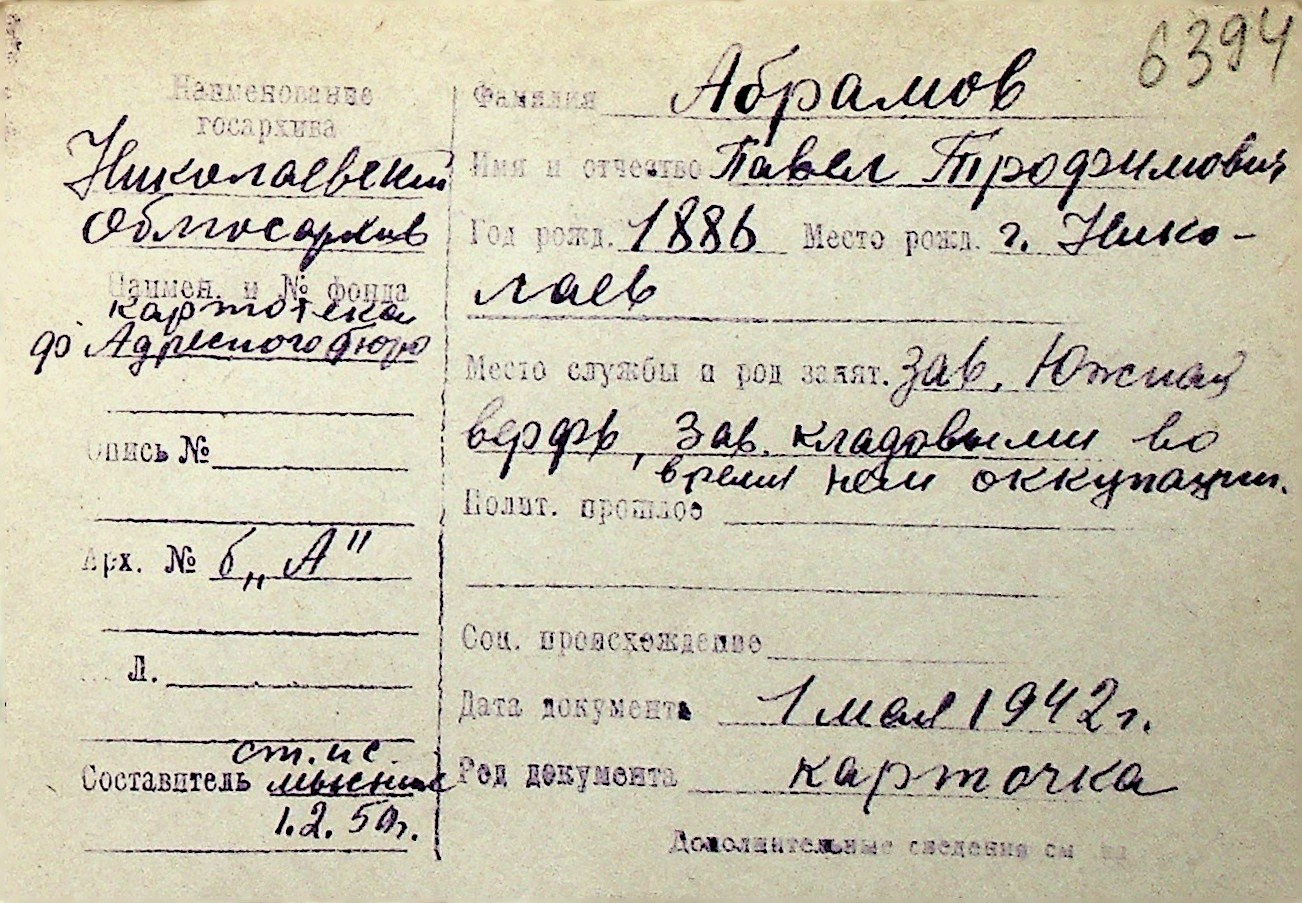 6394
Наименование
госархива
Николаевский
Облгосархив
Наимен. и № фонда
картотека
ф Адресного бюро
Опись №
Арх. № б„А"
Л.
Составитель ст. н.с.
1.2.50г.
Фамилия Абрамов
Имя и отчество Павел Трофимович
Год рожд. 1886 Место рожд. г. Нико-
лаев
Место службы и род занят. Зав. Южная
верфь, Зав. кладовыми во
время нем оккупации.
Полит. прошлое
Соц. происхождение
Дата документа 1 мая 1942 г.
Род документа карточка
Дополнительные сведения см на